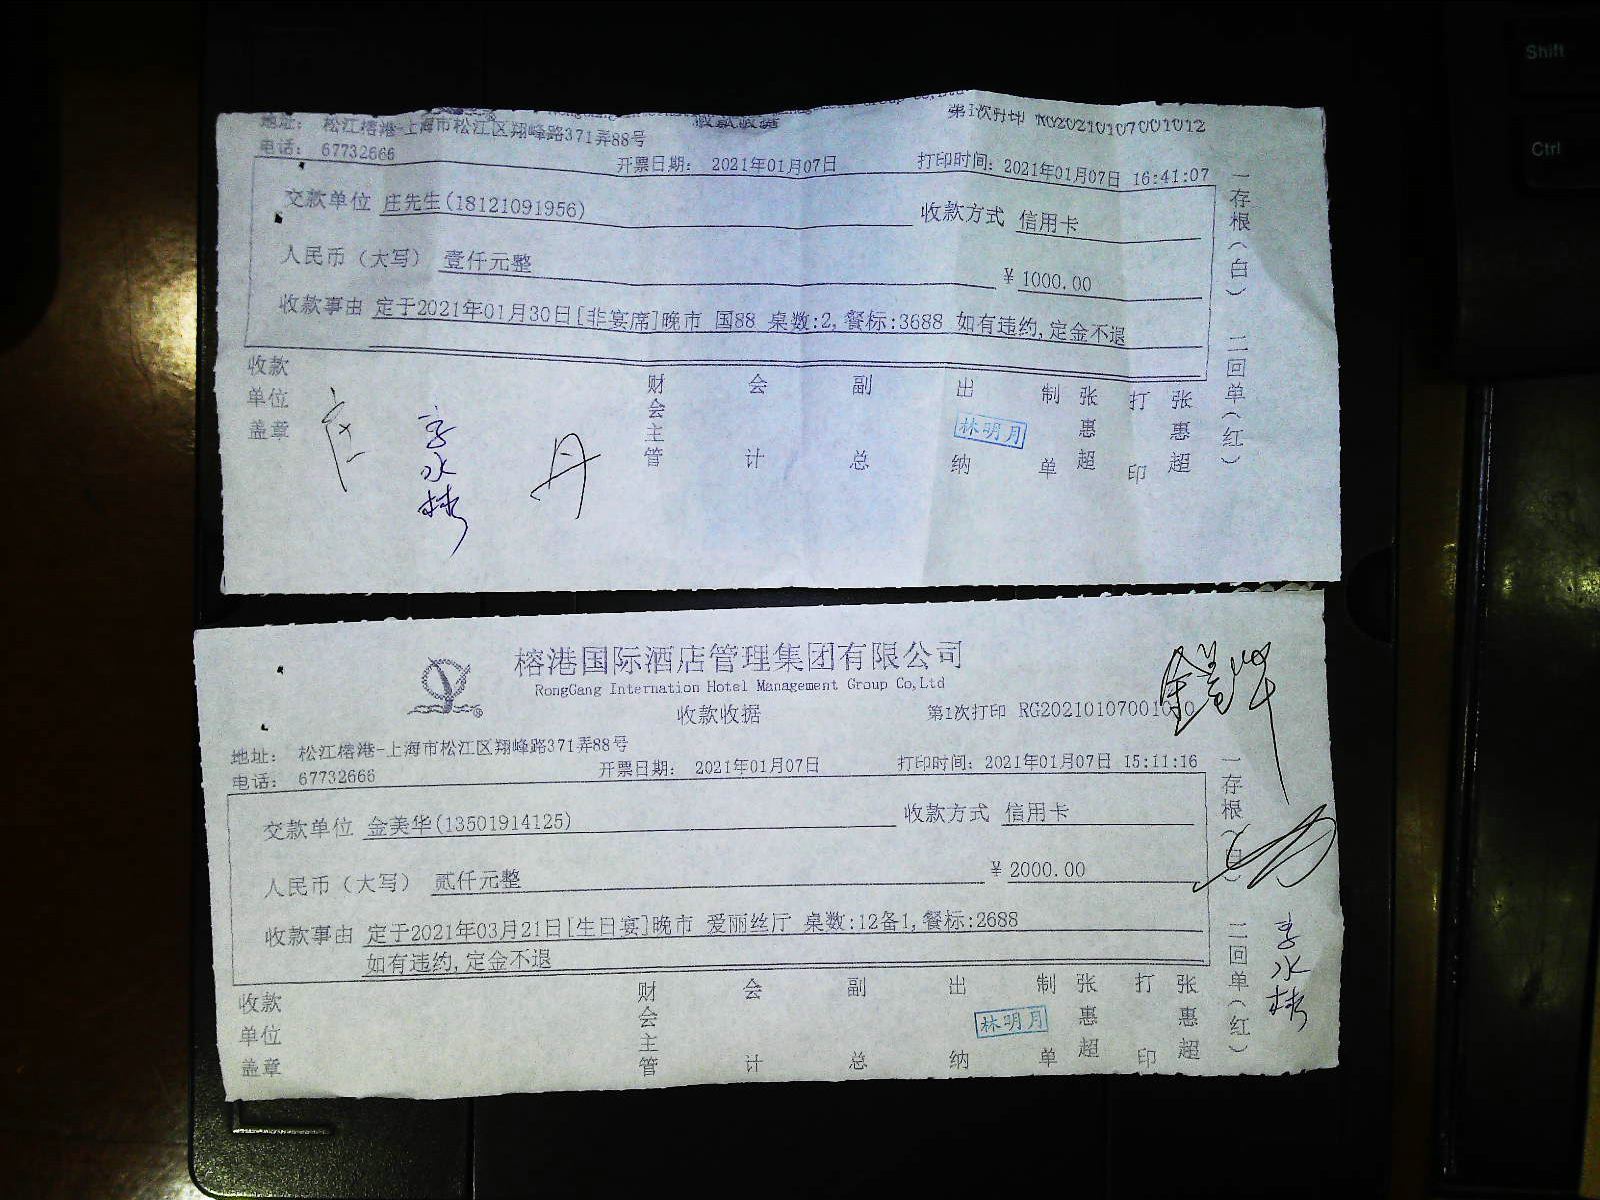 收款收据
第1次打印 RG20210107001012
地址： 松江榕港-上海市松江区翔峰路371弄88号
电话： 67732666
开票日期： 2021年01月07日
打印时间：2021年01月07日 16:41:07
交款单位 庄先生(18121091956)
收款方式 信用卡
人民币（大写） 壹仟元整
¥ 1000.00
收款事由 定于2021年01月30日[非宴席]晚市 国88 桌数:2,餐标:3688 如有违约,定金不退
收款单位盖章
财会主管
会计
副总
出纳
林明月
制单
张惠超
打印
张惠超
一存根（白） 二回单（红）
榕港国际酒店管理集团有限公司
RongGang Internation Hotel Management Group Co,Ltd
收款收据
第1次打印
地址： 松江榕港-上海市松江区翔峰路371弄88号
电话： 67732666
开票日期： 2021年01月07日
打印时间：2021年01月07日 15:11:16
交款单位 金美华(13501914125)
收款方式 信用卡
人民币（大写） 贰仟元整
¥ 2000.00
收款事由 定于2021年03月21日[生日宴]晚市 爱丽丝厅 桌数:12备1,餐标:2688
如有违约,定金不退
收款单位盖章
财会主管
会计
副总
出纳
林明月
制单
张惠超
打印
张惠超
一存根（白） 二回单（红）
Shift
Ctrl